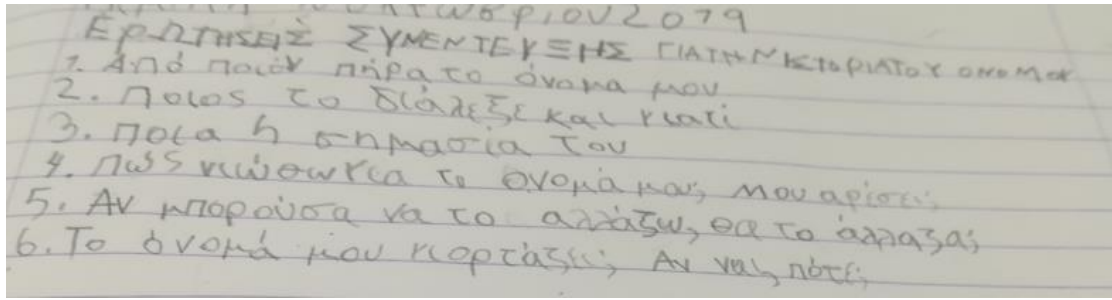 τωβρίου 2019
ΕΡΩΤΗΣΕΙΣ ΣΥΝΕΝΤΕΥΞΗΣ ΓΙΑ ΤΗΝ ΙΣΤΟΡΙΑ ΤΟΥ ΟΝΟΜ
1. Από ποιόν πήρα το όνομα μου
2. Ποιος το διάλεξε και γιατί
3. Ποια η σημασία του
4. Πως νιώθω για το όνομά μου; Μου αρέσει;
5. Αν μπορούσα να το αλλάξω, θα το άλλαζα;
6. Το όνομά μου γιορτάζει; Αν ναι, πότε;